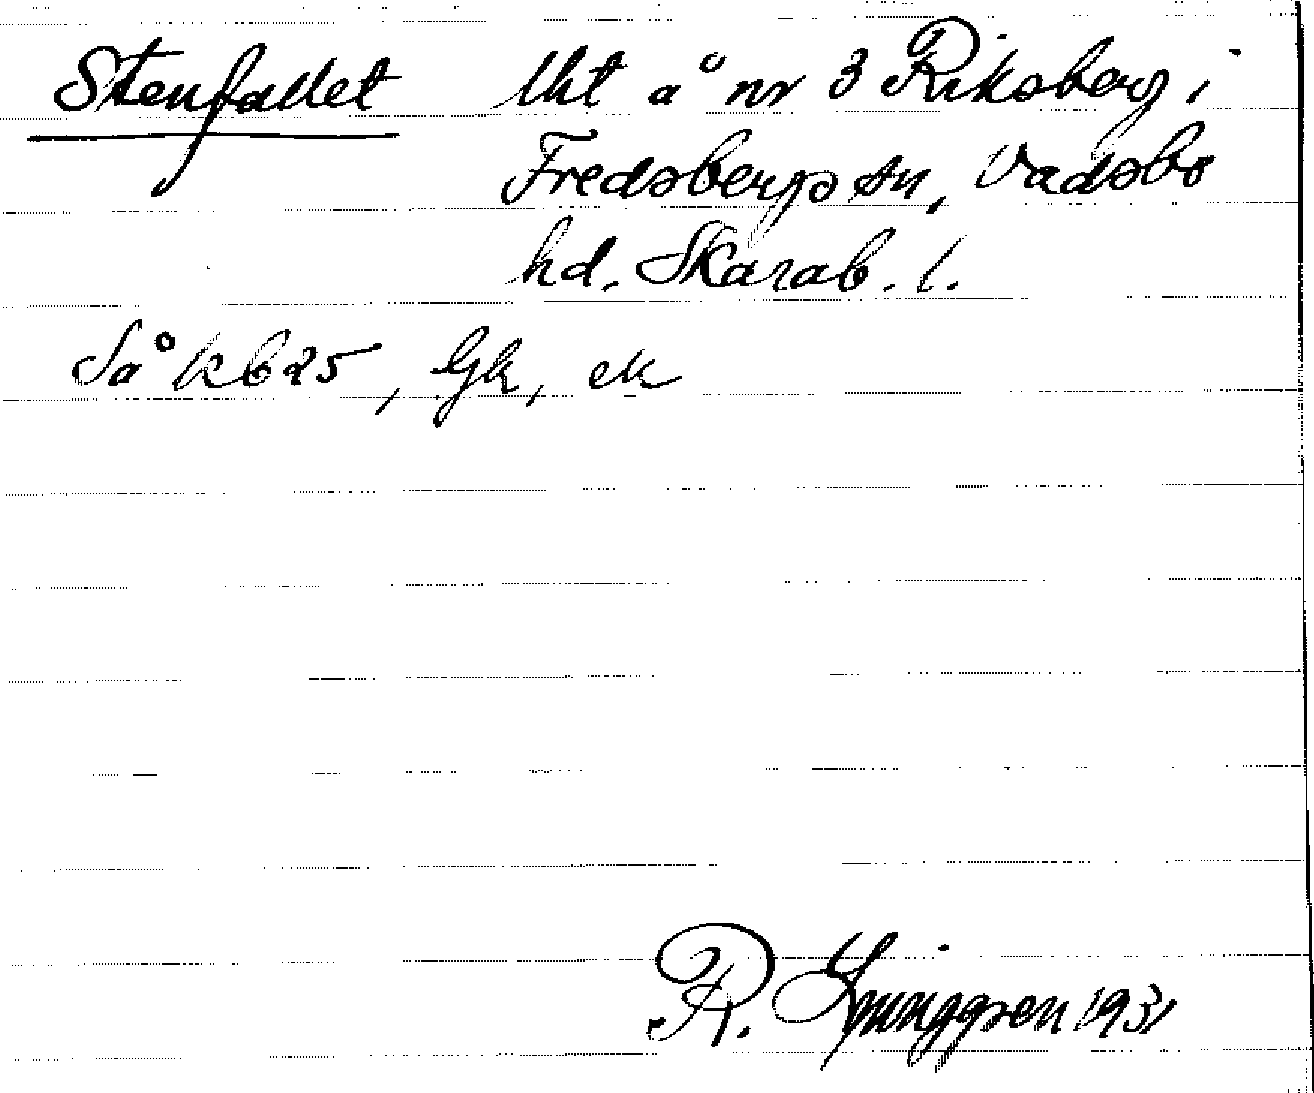 Stenfallet lht å nr 3 Riksberg i
Fredsbergs sn, Vadsbo
hd. Skarab. l.
Så kb 25, Gk, ek
R. Ljunggren 1931